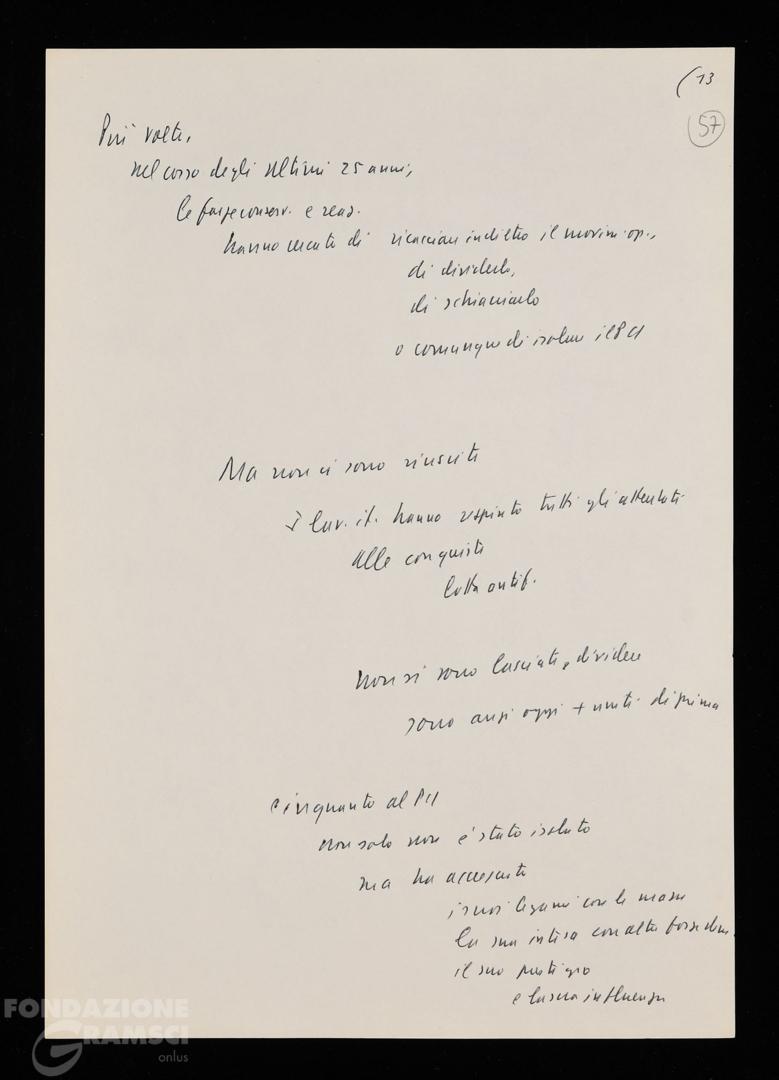 (13
57
Più volte,
nel corso degli ultimi 25 anni,
le forze conserv. e reaz.
hanno cercato di ricacciare indietro il movim. op.,
di dividerlo,
di schiacciarlo
o comunque di isolare il PCI
Ma non ci sono riusciti
I lav. it. hanno respinto tutti gli attentati
alle conquiste
lotta antif.
Non si sono lasciati dividere
sono anzi oggi + uniti di prima
e in quanto al PCI
non solo non è stato isolato
ma ha accresciuto
i suoi legami con le masse
la sua intesa con altre forze dem.
il suo prestigio
e la sua influenza
FONDAZIONE
GRAMSCI
onlus